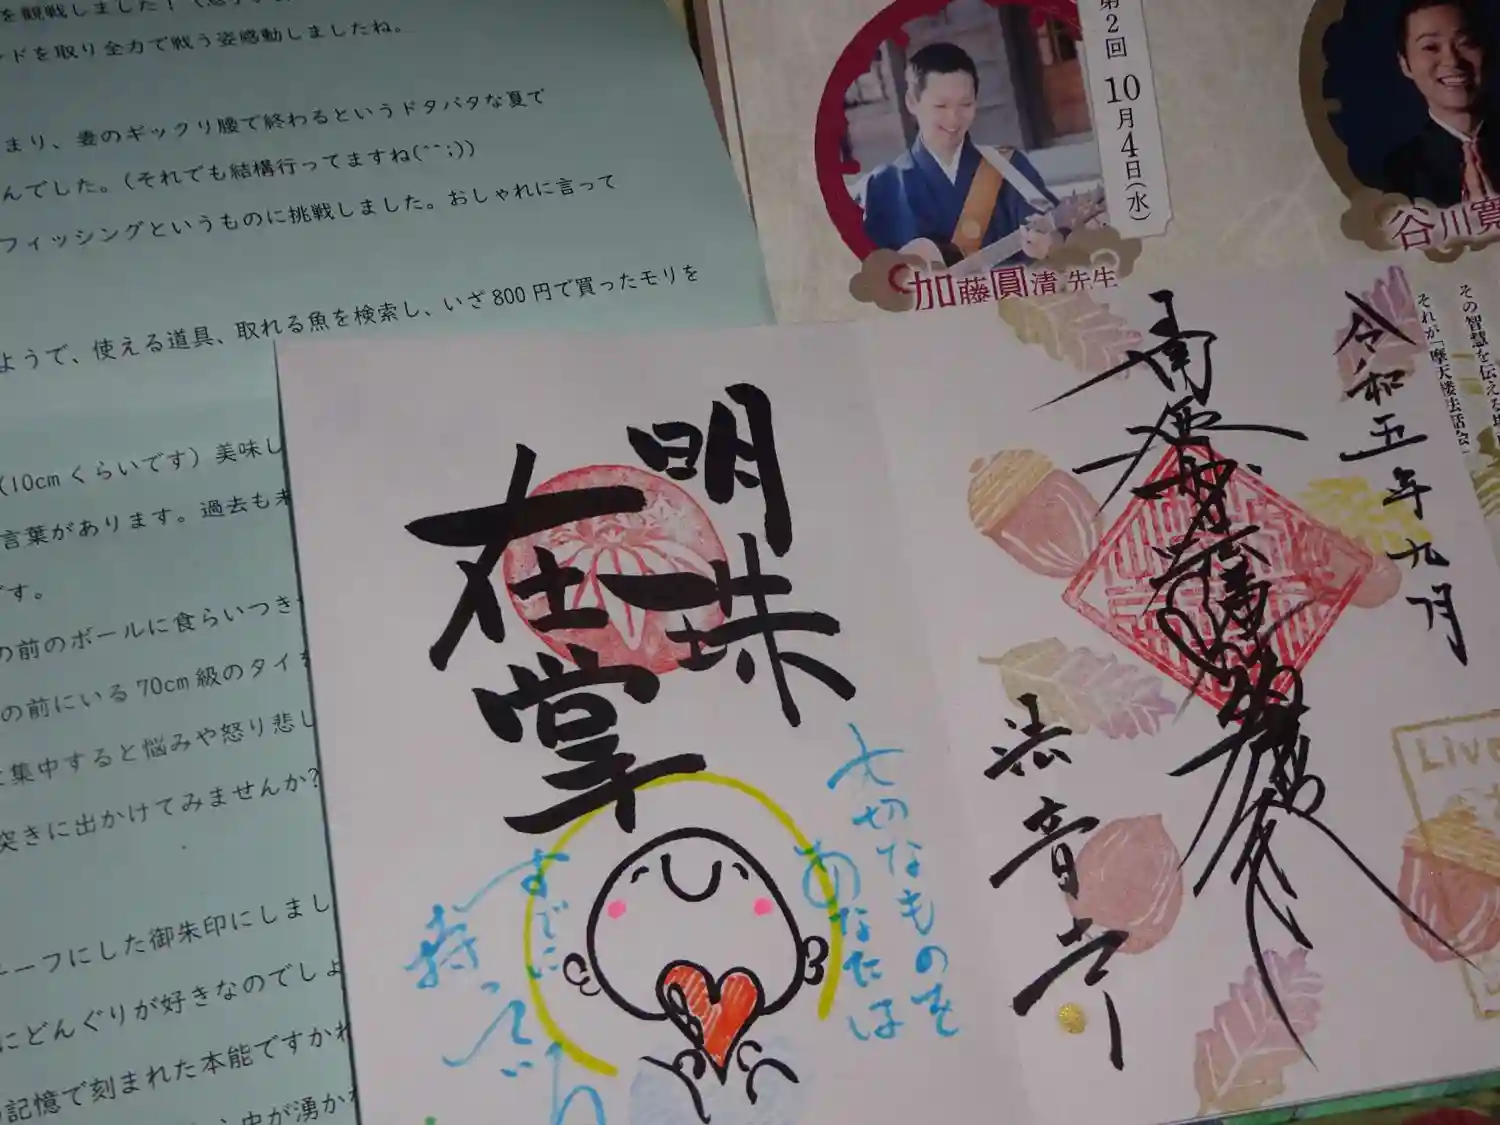 を観戦しました！
ードを取り全力で戦う姿感動しましたね。
まり、妻のギックリ腰で終わるというドタバタな夏で
んでした。(それでも結構行ってますね(^^;))
フィッシングというものに挑戦しました。おしゃれに言って
ようで、使える道具、取れる魚を検索し、いざ800円で買ったモリを
(10cmくらいです)美味し
言葉があります。過去も未
です。
の前のボールに食らいつき
の前にいる70cm級のタイを
に集中すると悩みや怒り悲し
突きに出かけてみませんか?
チーフにした御朱印にしまし
にどんぐりが好きなのでしょ
記憶で刻まれた本能ですかね
中が湧かれ
第2回 10月4日(水)
加藤圓清 先生
谷川寛
その智慧を伝える
それが「摩天楼法話会」
令和五年九月
法音寺
明珠
在掌
大切なものを
あなたは
すでに
持っている
Live